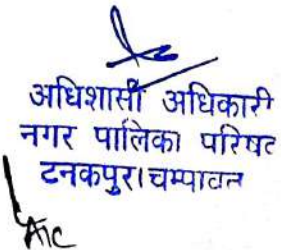 अधिशासी अधिकारी
नगर पालिका परिषद
टनकपुर।चम्पावत